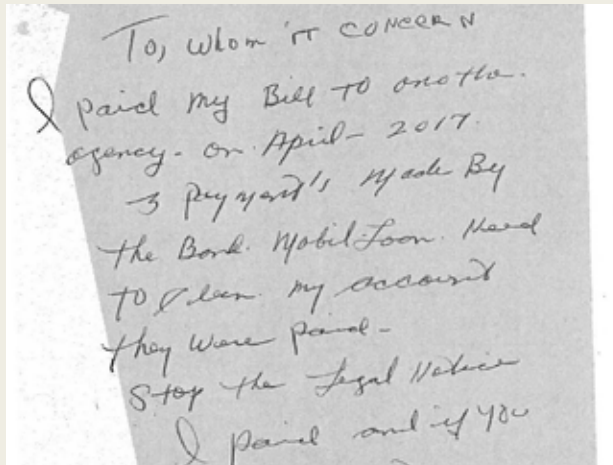 To, Whom iT CONCERN
I paid my Bill To anothe.
agency- on April- 2017.
3 payment's Made By
the Bank. Mobil-Loan. Need
To Clean my account
they Were paid-
Stop the Legal Notice
I paid and if you